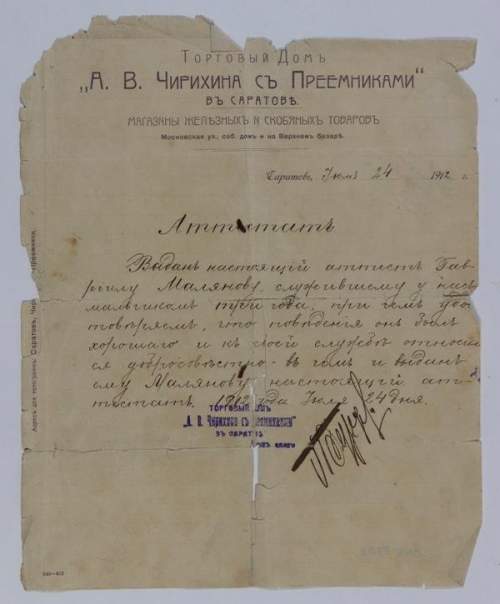 Торговый Домъ
„А. В. Чирихина съ Преемниками“
въ Саратовѣ.
Магазины желѣзныхъ и скобяныхъ товаровъ
Московская ул., соб. домъ и на Верхнемъ базарѣ.
Саратовъ, Іюль 24 1912 г.
Аттестатъ
Выданъ настоящій аттестъ Гав-
рилу Малянову, служившему у насъ
мальчикомъ три года, при чемъ удос-
товѣряемъ, что поведенія онъ былъ
хорошаго и къ своей службѣ относил-
ся добросовѣстно - въ чемъ и выданъ
ему Малянову настоящій ат-
тестатъ. 1912 года Іюля 24 дня.
ТОРГОВЫЙ ДОМЪ
„А. В. Чирихина съ Преемниками“
ВЪ САРАТОВѢ
Адресъ для телеграммъ: Саратовъ,